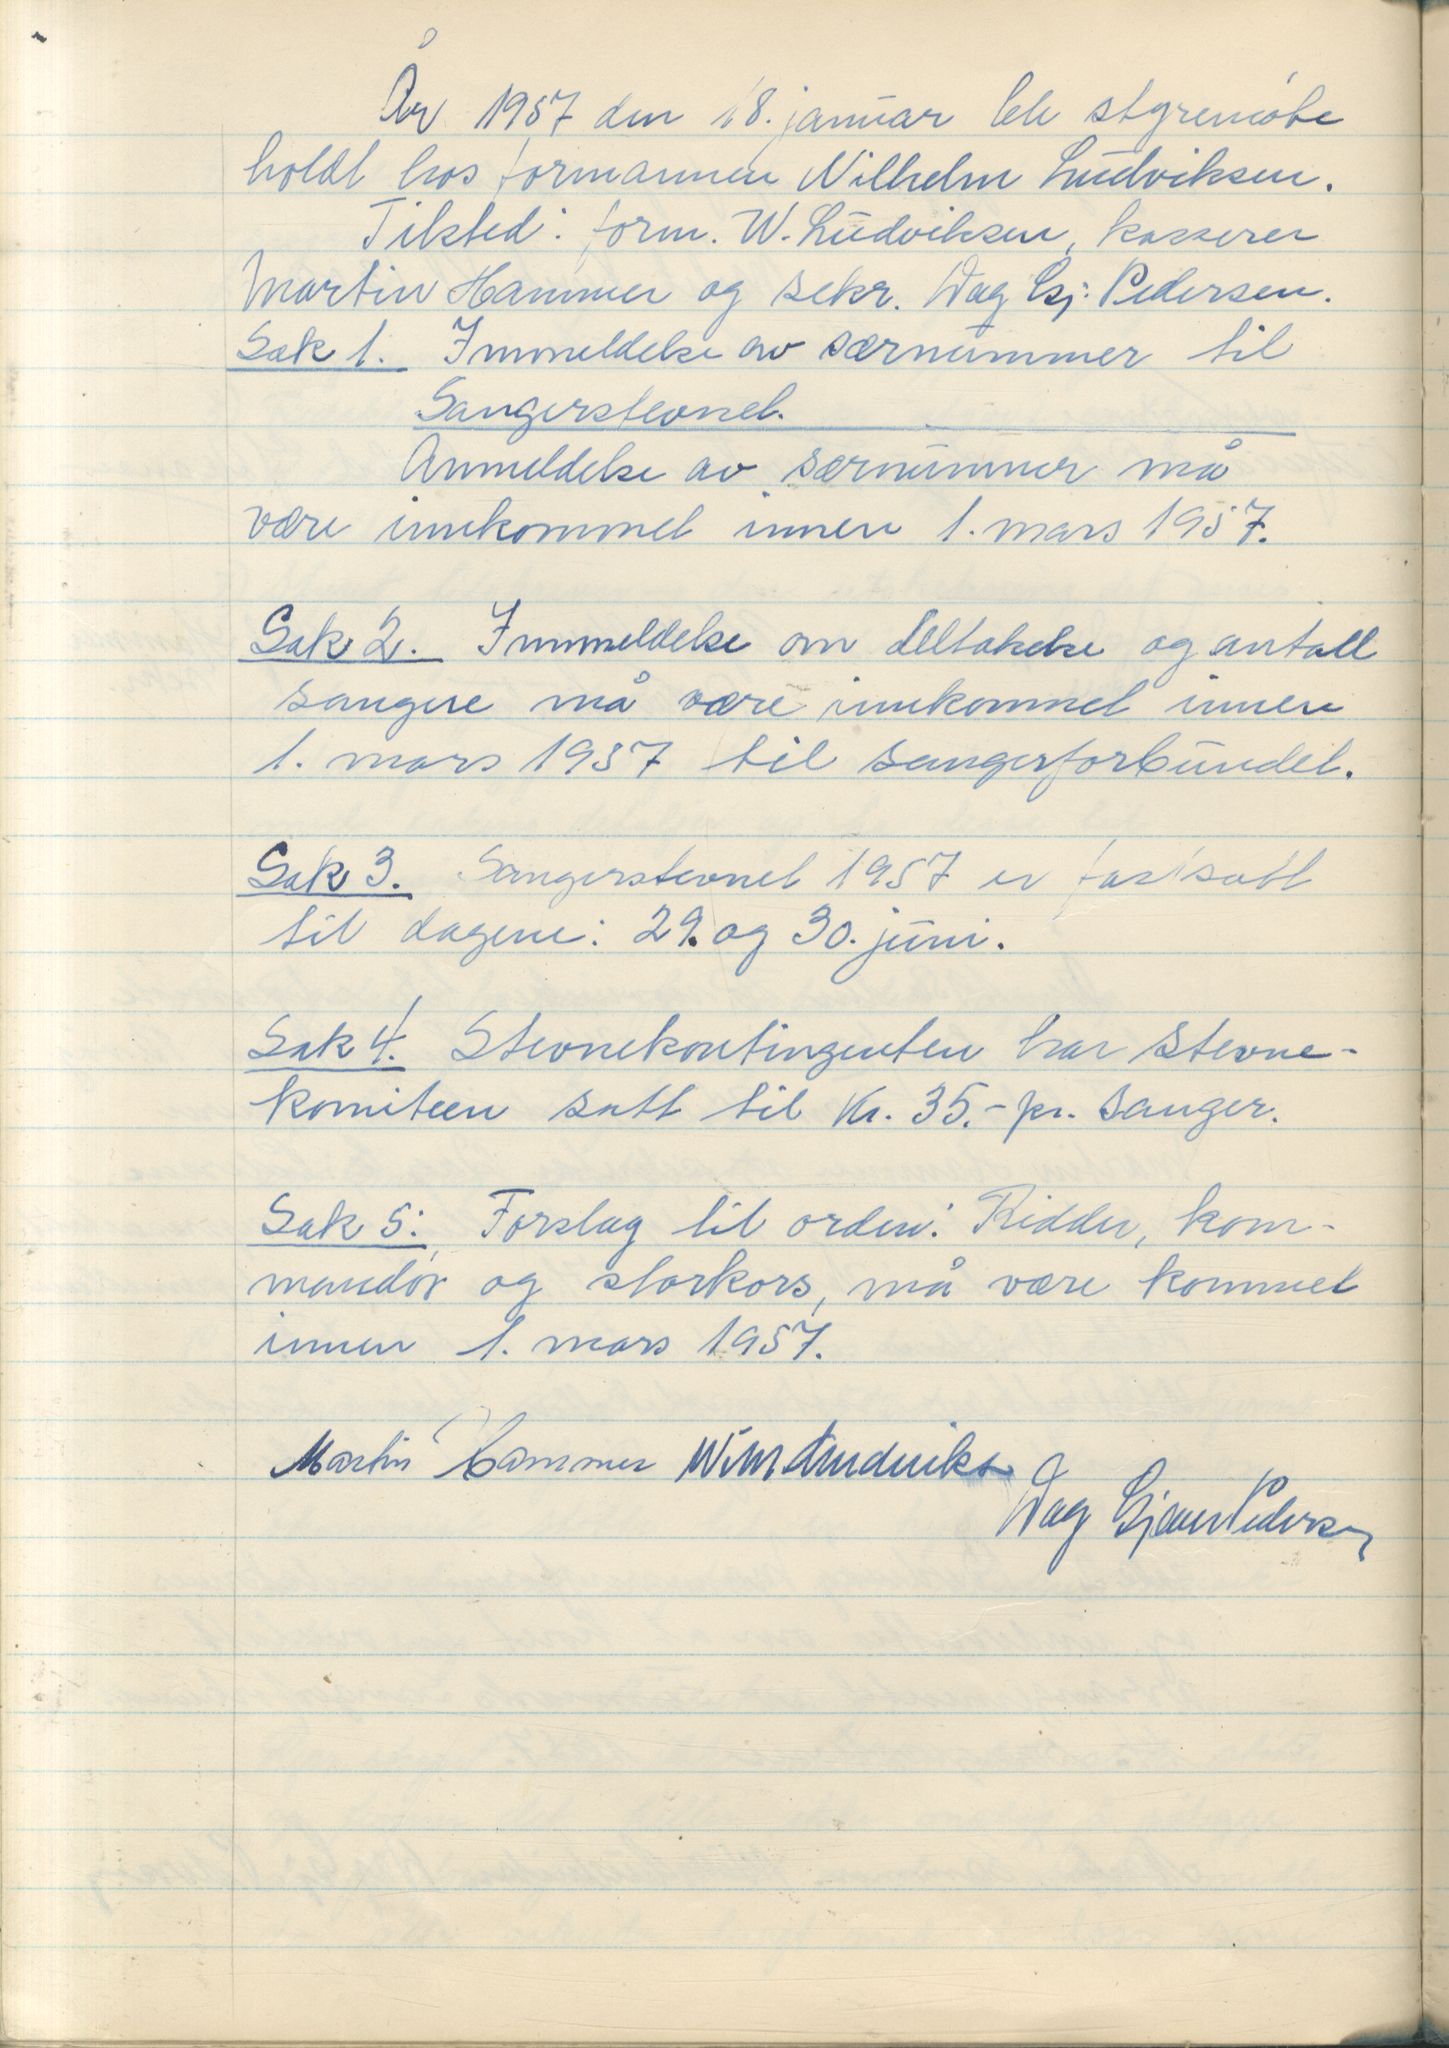 År 1957 den 18. januar ble styremøte
holdt hos formannen Wilhelm Ludviksen.
Tilsted: form. W. Ludviksen, kasserer
Martin Hammer og sekr. Dag Gj. Pedersen.
Sak 1. Innmeldelse av særnummer til
Sangerstevnet.
Anmeldelse av særnummer må
være innkommet innen 1. mars 1957.
Sak 2. Innmeldelse om deltakelse og antall
sangere må være innkommet innen
1. mars 1957 til sangerforbundet.
Sak 3. Sangerstevnet 1957 er fastsatt
til dagene: 29. og 30. juni.
Sak 4. Stevnekontingenten har stevne-
komiteen satt til Kr. 35.- pr. sanger.
Sak 5: Forslag til orden: Ridder, kom-
mandør og storkors, må være kommet
innen 1. mars 1957.
Martin Hammer Wilh Ludviksen
Dag Gjæver Pedersen